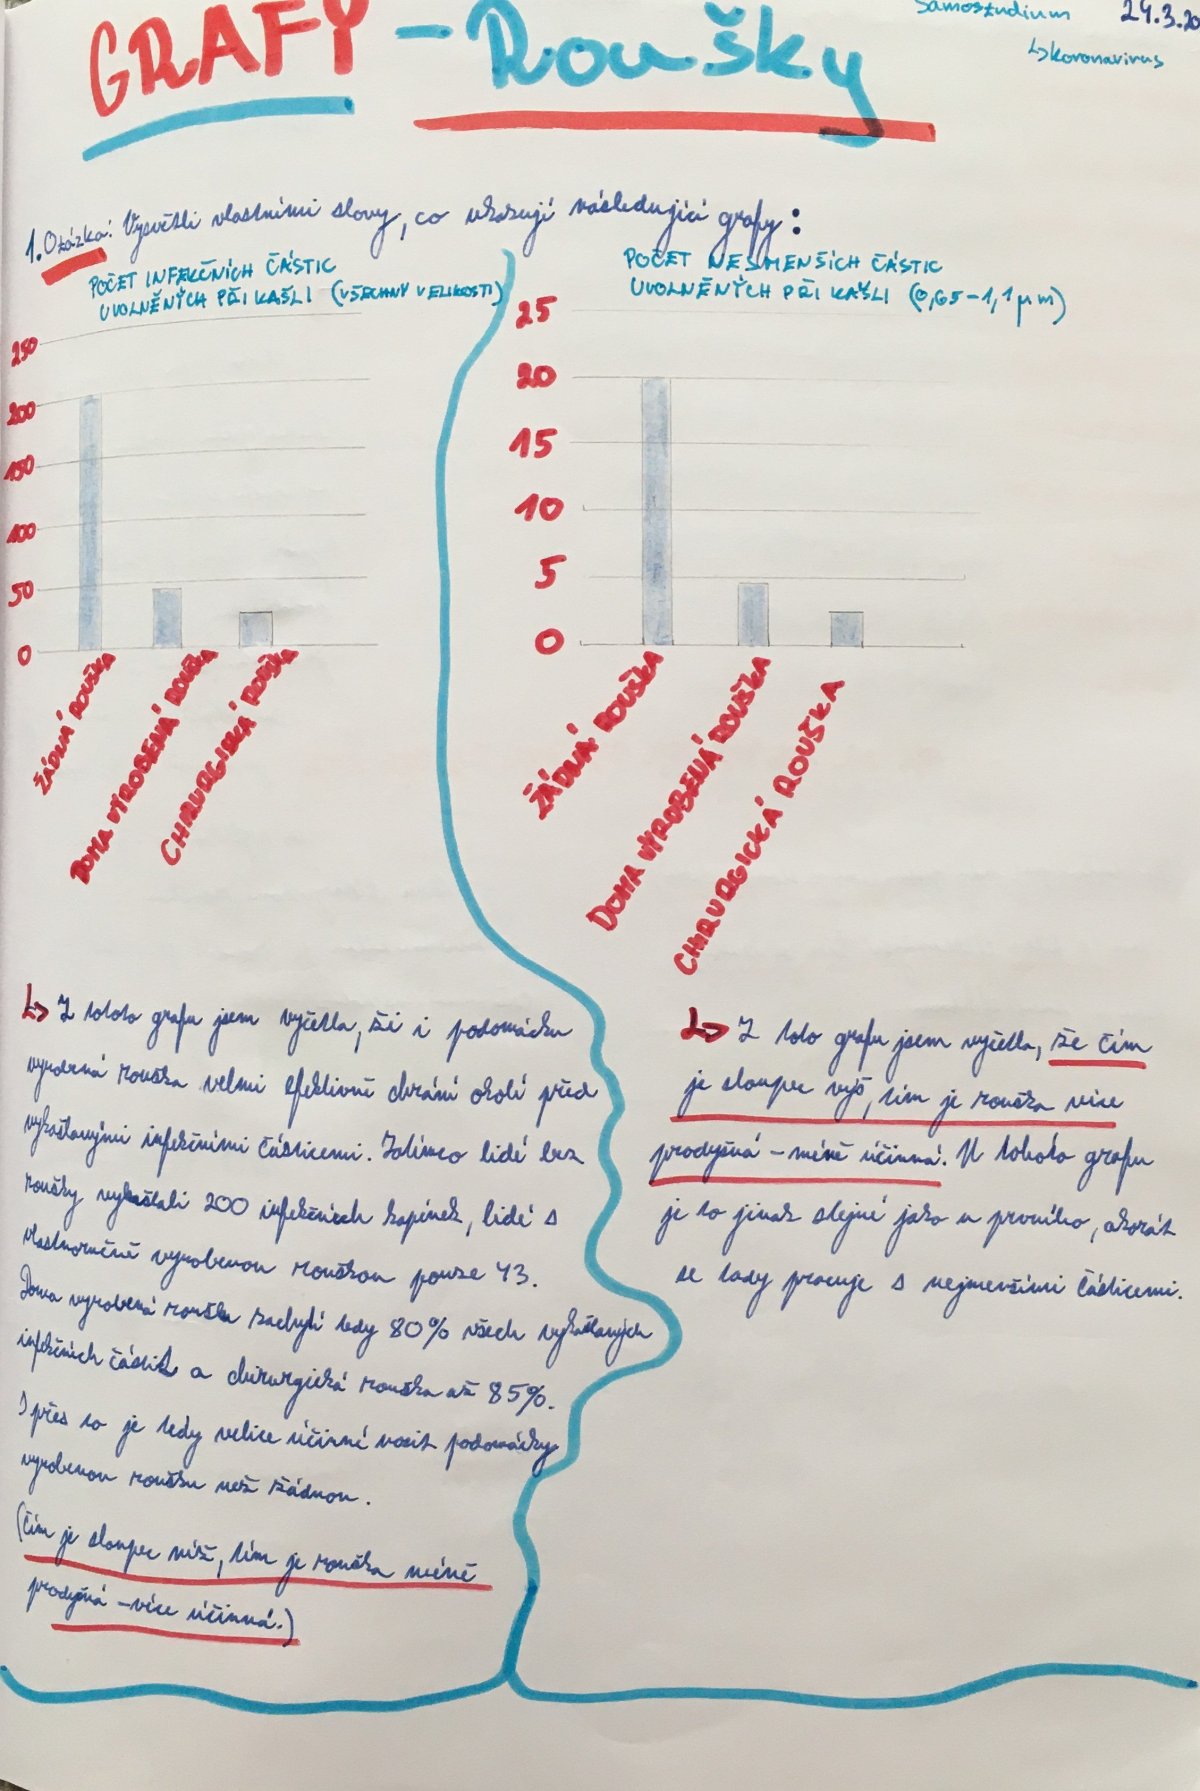 GRAFY - Roušky
Samostudium 24.3.20
↳koronavirus
1. Otázka: Vysvětli vlastními slovy, co ukazují následující grafy:
POČET INFEKČNÍCH ČÁSTIC
UVOLNĚNÝCH PŘI KAŠLI (VŠECHNY VELIKOSTI)
250
200
150
100
50
0
ŽÁDNÁ ROUŠKA
DOMA VYROBENÁ ROUŠKA
CHIRURGICKÁ ROUŠKA
↳ Z tohoto grafu jsem vyčetla, že i podomácku
vyrobená rouška velmi efektivně chrání okolí před
vykašlanými infekčními částicemi. Zatímco lidé bez
roušky vykašlali 200 infekčních kapének, lidé s
vlastnoručně vyrobenou rouškou pouze 43.
Doma vyrobená rouška zachytí tedy 80% všech vykašlaných
infekčních částic a chirurgická rouška až 85%.
I přes to je tedy velice účinné nosit podomácky
vyrobenou roušku než žádnou.
(Čím je sloupec níž, tím je rouška méně
prodyšná - více účinná.)
POČET NESMENŠÍCH ČÁSTIC
UVOLNĚNÝCH PŘI KAŠLI (0,65-1,1 µm)
25
20
15
10
5
0
ŽÁDNÁ ROUŠKA
DOMA VYROBENÁ ROUŠKA
CHIRURGICKÁ ROUŠKA
↳ Z toto grafu jsem vyčetla, že čím
je sloupec výš, tím je rouška více
prodyšná - méně účinná. U tohoto grafu
je to jinak stejné jako u prvního, akorát
se tady pracuje s nejmenšími částicemi.